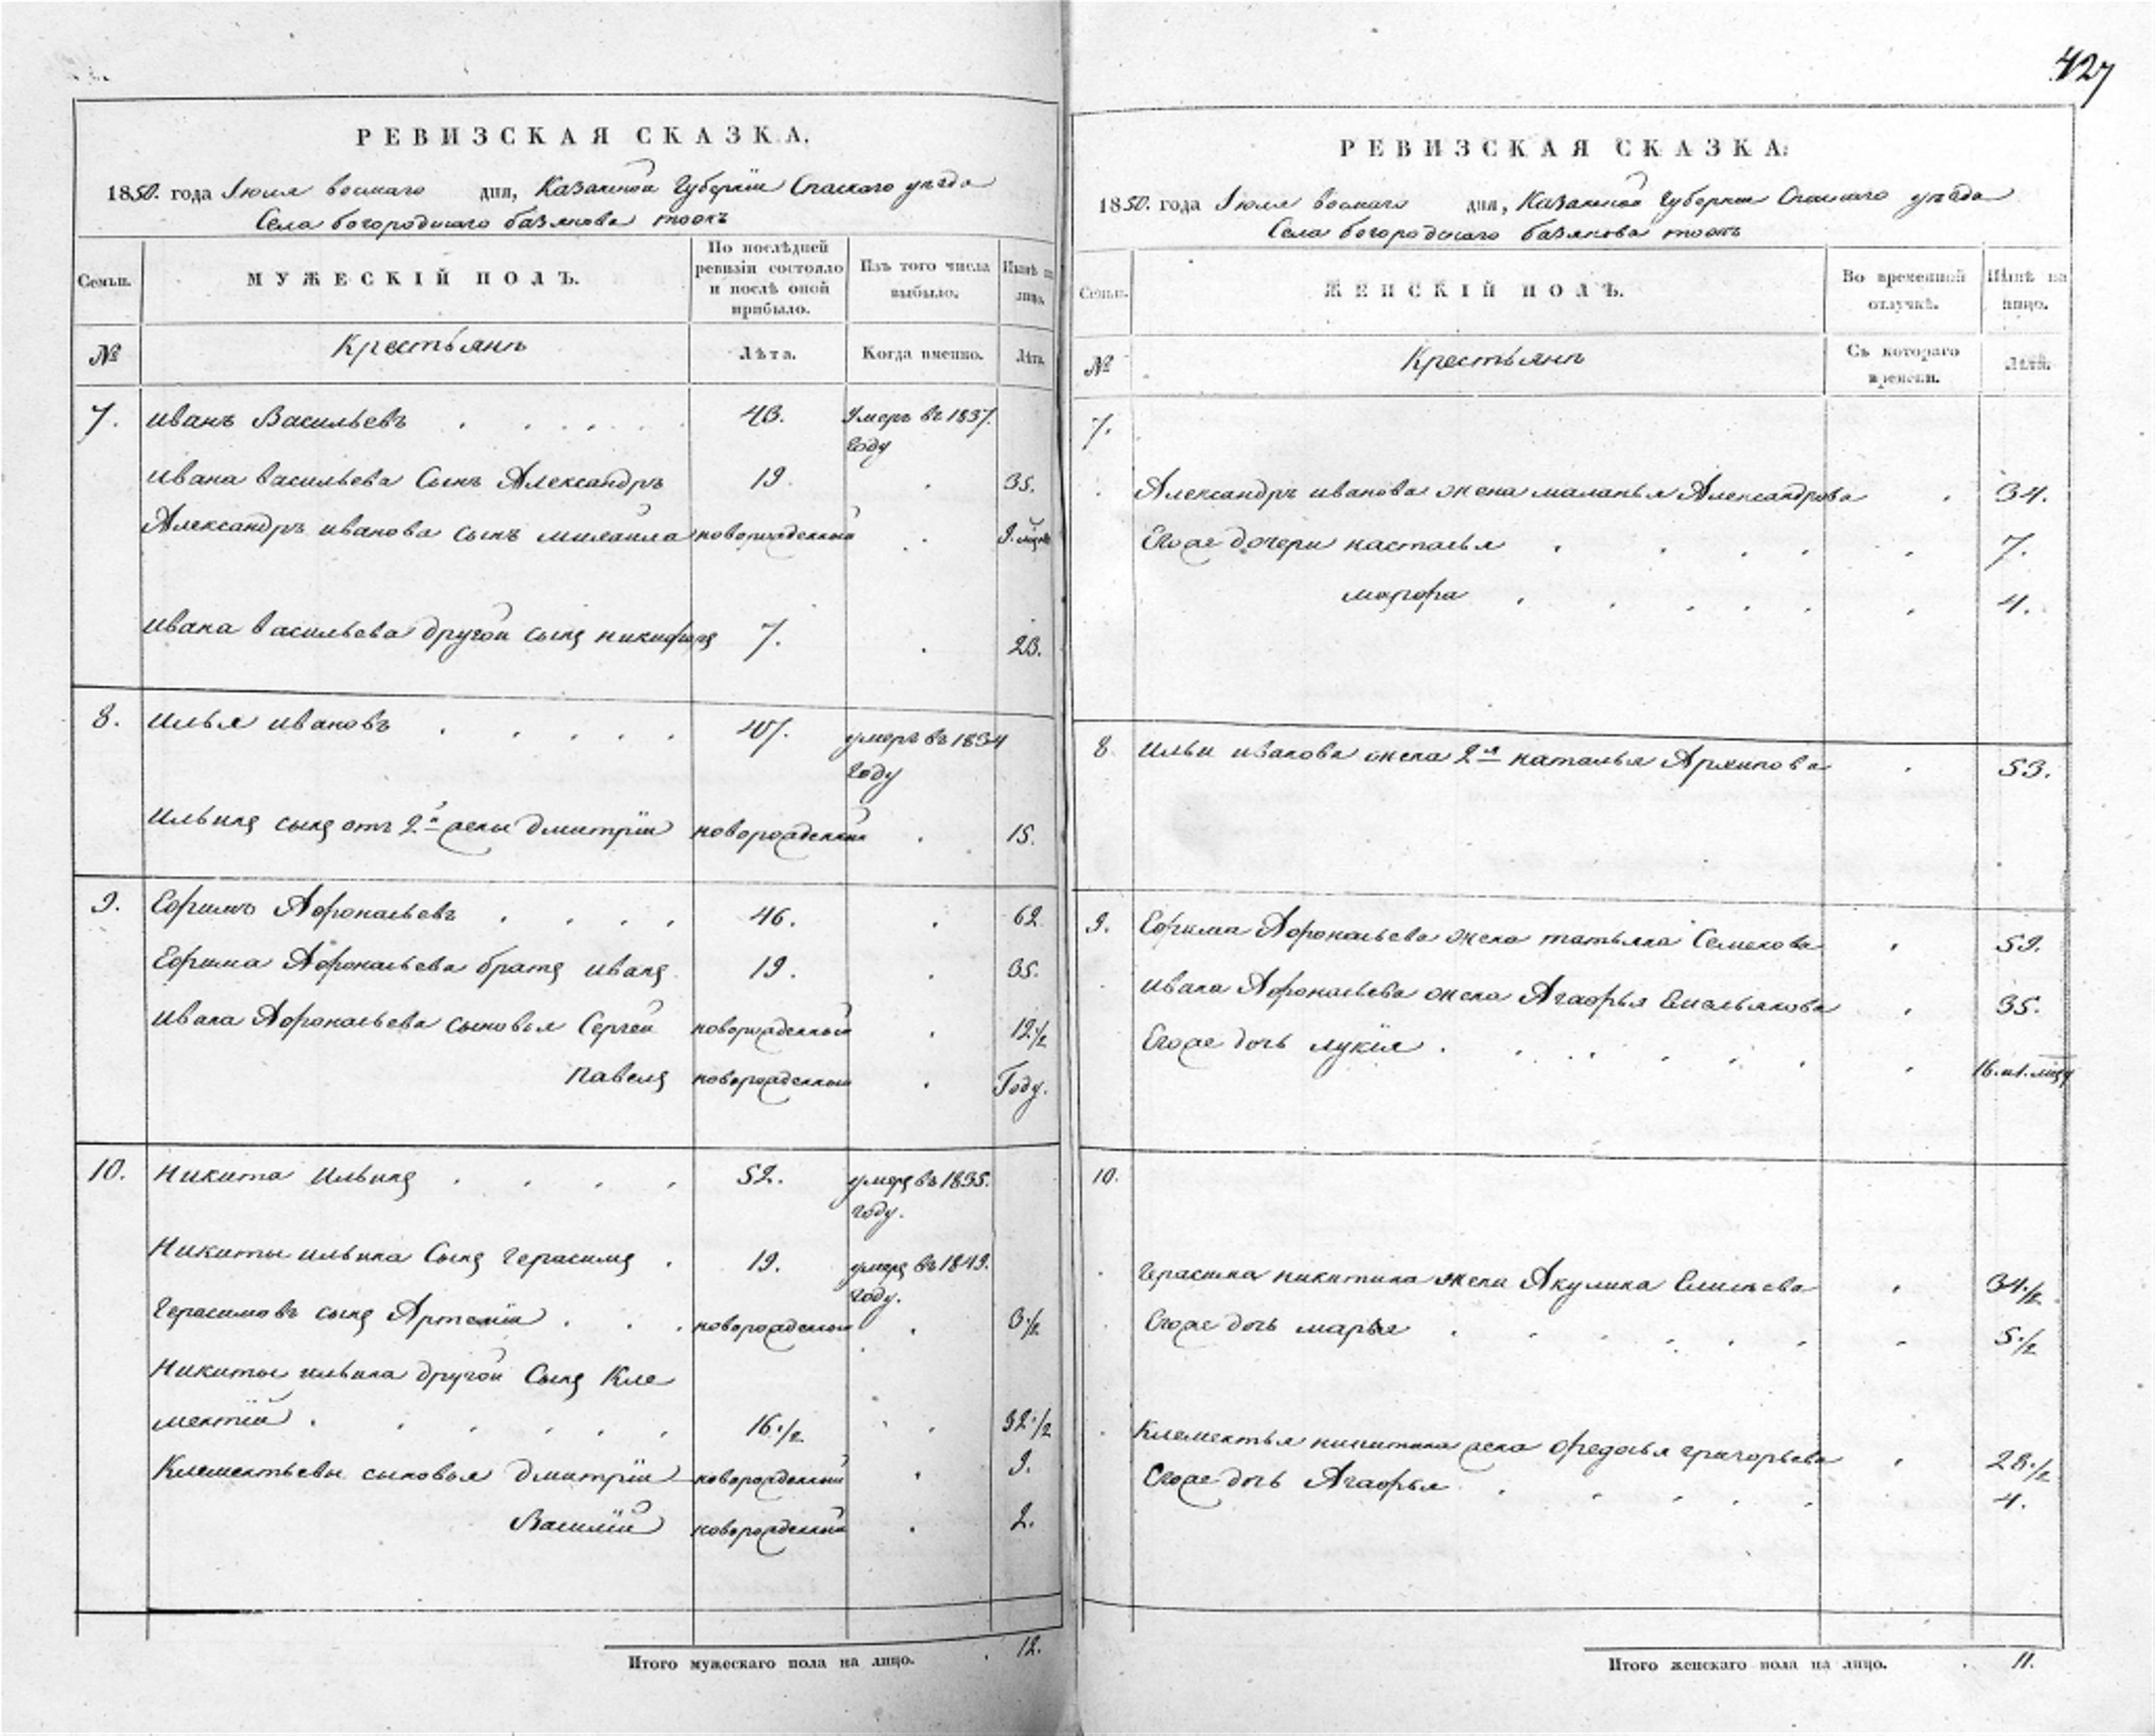 427
РЕВИЗСКАЯ СКАЗКА.
1850. года Іюля восмаго дня, Казанской Губерніи Спаскаго уезда
Села богородскаго базякова тожъ
Семьи.
МУЖЕСКІЙ ПОЛЪ.
По послѣдней ревизіи состояло и послѣ оной прибыло.
Изъ того числа выбыло.
Нынѣ на лицо.
№
Крестьянъ
Лѣта.
Когда именно.
Лѣта.
7. иванъ Васильевъ 43. Умеръ въ 1837.
году
ивана васильева Сынъ Александръ 19. 35.
Александръ иванова сынъ михаила новорожденной 9. мѣс
ивана васильева другой сынъ никифоръ 7. 23.
8. илья ивановъ 47. умеръ въ 1834
году
ильинъ сынъ отъ 2й жены дмитрій новорожденный 15.
9. Ефимъ Афонасьевъ 46. 62
Ефима Афонасьева братъ иванъ 19. 35.
ивана Афонасьева сыновья Сергей новорожденной 12 1/2
павелъ новорожденной Году.
10. Никита Ильинъ 52. умеръ въ 1835.
году.
Никиты ильина Сынъ герасимъ 19. умеръ въ 1849.
году.
герасимовъ сынъ Артемій новорожденной 3 1/2
Никиты ильина другой Сынъ Кле
ментій 16 1/2 32 1/2
Клементьевы сыновья дмитрій новорожденный 9.
Василій новорожденный 2.
Итого мужескаго пола на лицо. 12.
РЕВИЗСКАЯ СКАЗКА.
1850. года Іюля восмаго дня, Казанской Губерніи Спаскаго уезда
Села богородскаго базякова тожъ
Семьи.
ЖЕНСКІЙ ПОЛЪ.
Во временной отлучкѣ.
Нынѣ на лицо.
№
Крестьянъ
Съ котораго времени.
Лѣта.
7.
Александръ иванова жена маланья Александрова 34.
Егоже дочери настасья 7.
марфа 4.
8 ильи иванова жена 2я наталья Архипова 53.
9. Ефима Афонасьева жена татьяна Семенова 59.
ивана Афонасьева жена Агафья Емельянова 35.
Егоже дочь лукія 16. и 1. мѣся
10.
герасима никитина жена Акулина 34 1/2
Егоже дочь марья 5 1/2
Клементья никитина жена федосья григорьева 28 1/2
Егоже дочь Агафья 4.
Итого женскаго пола на лицо. 11.